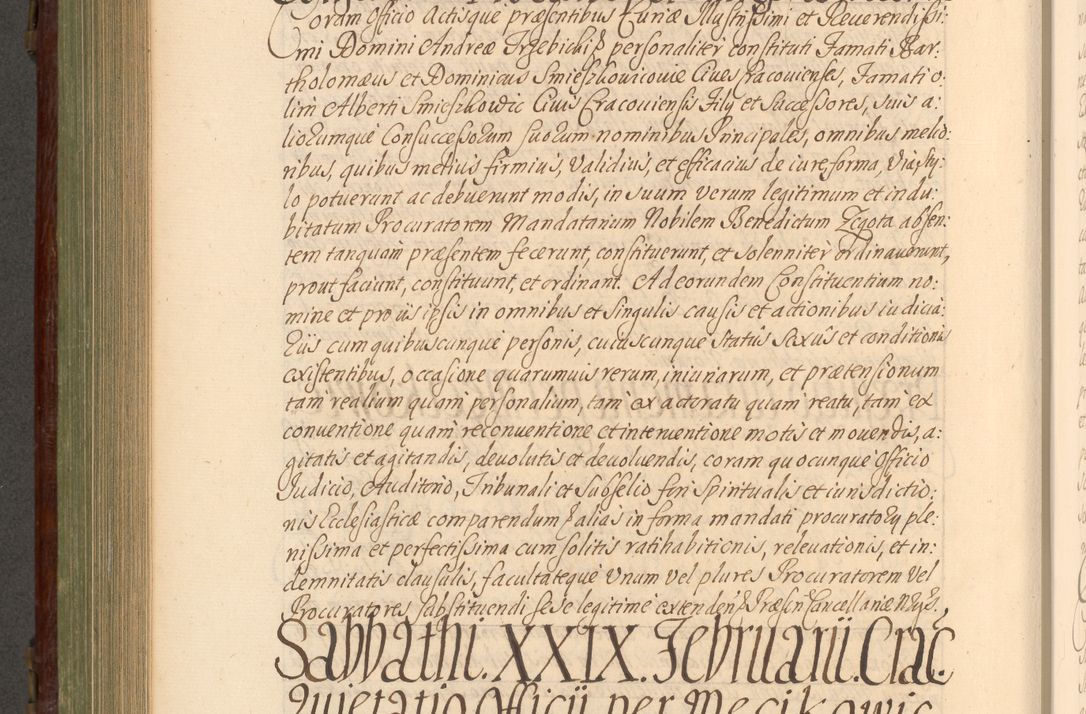 Coram Officio Actisque præsentibus Curiæ Illustrissimi et Reuerendissi:
mi Domini Andreæ Trzebicki &c personaliter constituti Famati Bar:
tholomæus et Dominicus Smieszkouicouiæ Ciues Cracouienses, Famati o:
lim Alberti Smieszkowic Ciuis Cracouiensis Filÿ et Successores, suis a:
liorumquè Consuccessorum suorum nominibus Principales, omnibus melio:
ribus, quibus melius firmius, validius, et efficacius de iure, forma, via, sty:
lo potuerunt ac debuerunt modis, in suum verum legitimum et indu:
bitatum Procuratorem Mandatarium Nobilem Benedictum Zegota absen:
tem tanquam præsentem fecerunt, constituerunt, et solenniter ordinauerunt,
prout faciunt, constituunt, et ordinant. Ad eorundem Constituentium no:
mine et pro iis ipsis in omnibus et singulis causis et actionibus iudicia:
riis cum quibuscunque personis, cuiuscunque status sexus et conditionis
existentibus, occasione quarumuis rerum, iniuriarum, et prætensionum
tam realium quam personalium, tam ex actoratu quam reatu, tam ex
conuentione quam reconuentione et interuentione motis et mouendis, a:
gitatis et agitandis, deuolutis et deuoluendis, coram quocunque Officio
Judicio, Auditorio, Tribunali et Subselio fori Spiritualis et iurisdictio:
nis Ecclesiasticæ comparendum &c alias in forma mandati procuratory ple:
nissima et perfectissima cum solitis ratihabitionis, releuationis, et in:
demnitatis clausulis, facultateque unum vel plures Procuratorem vel
Procuratores substituendi sese legitime extenden &c Præsen Cancellariæ
Sabbathi. XXIX. Februarii. Crac.
Quietatio Officii per Mecikowic